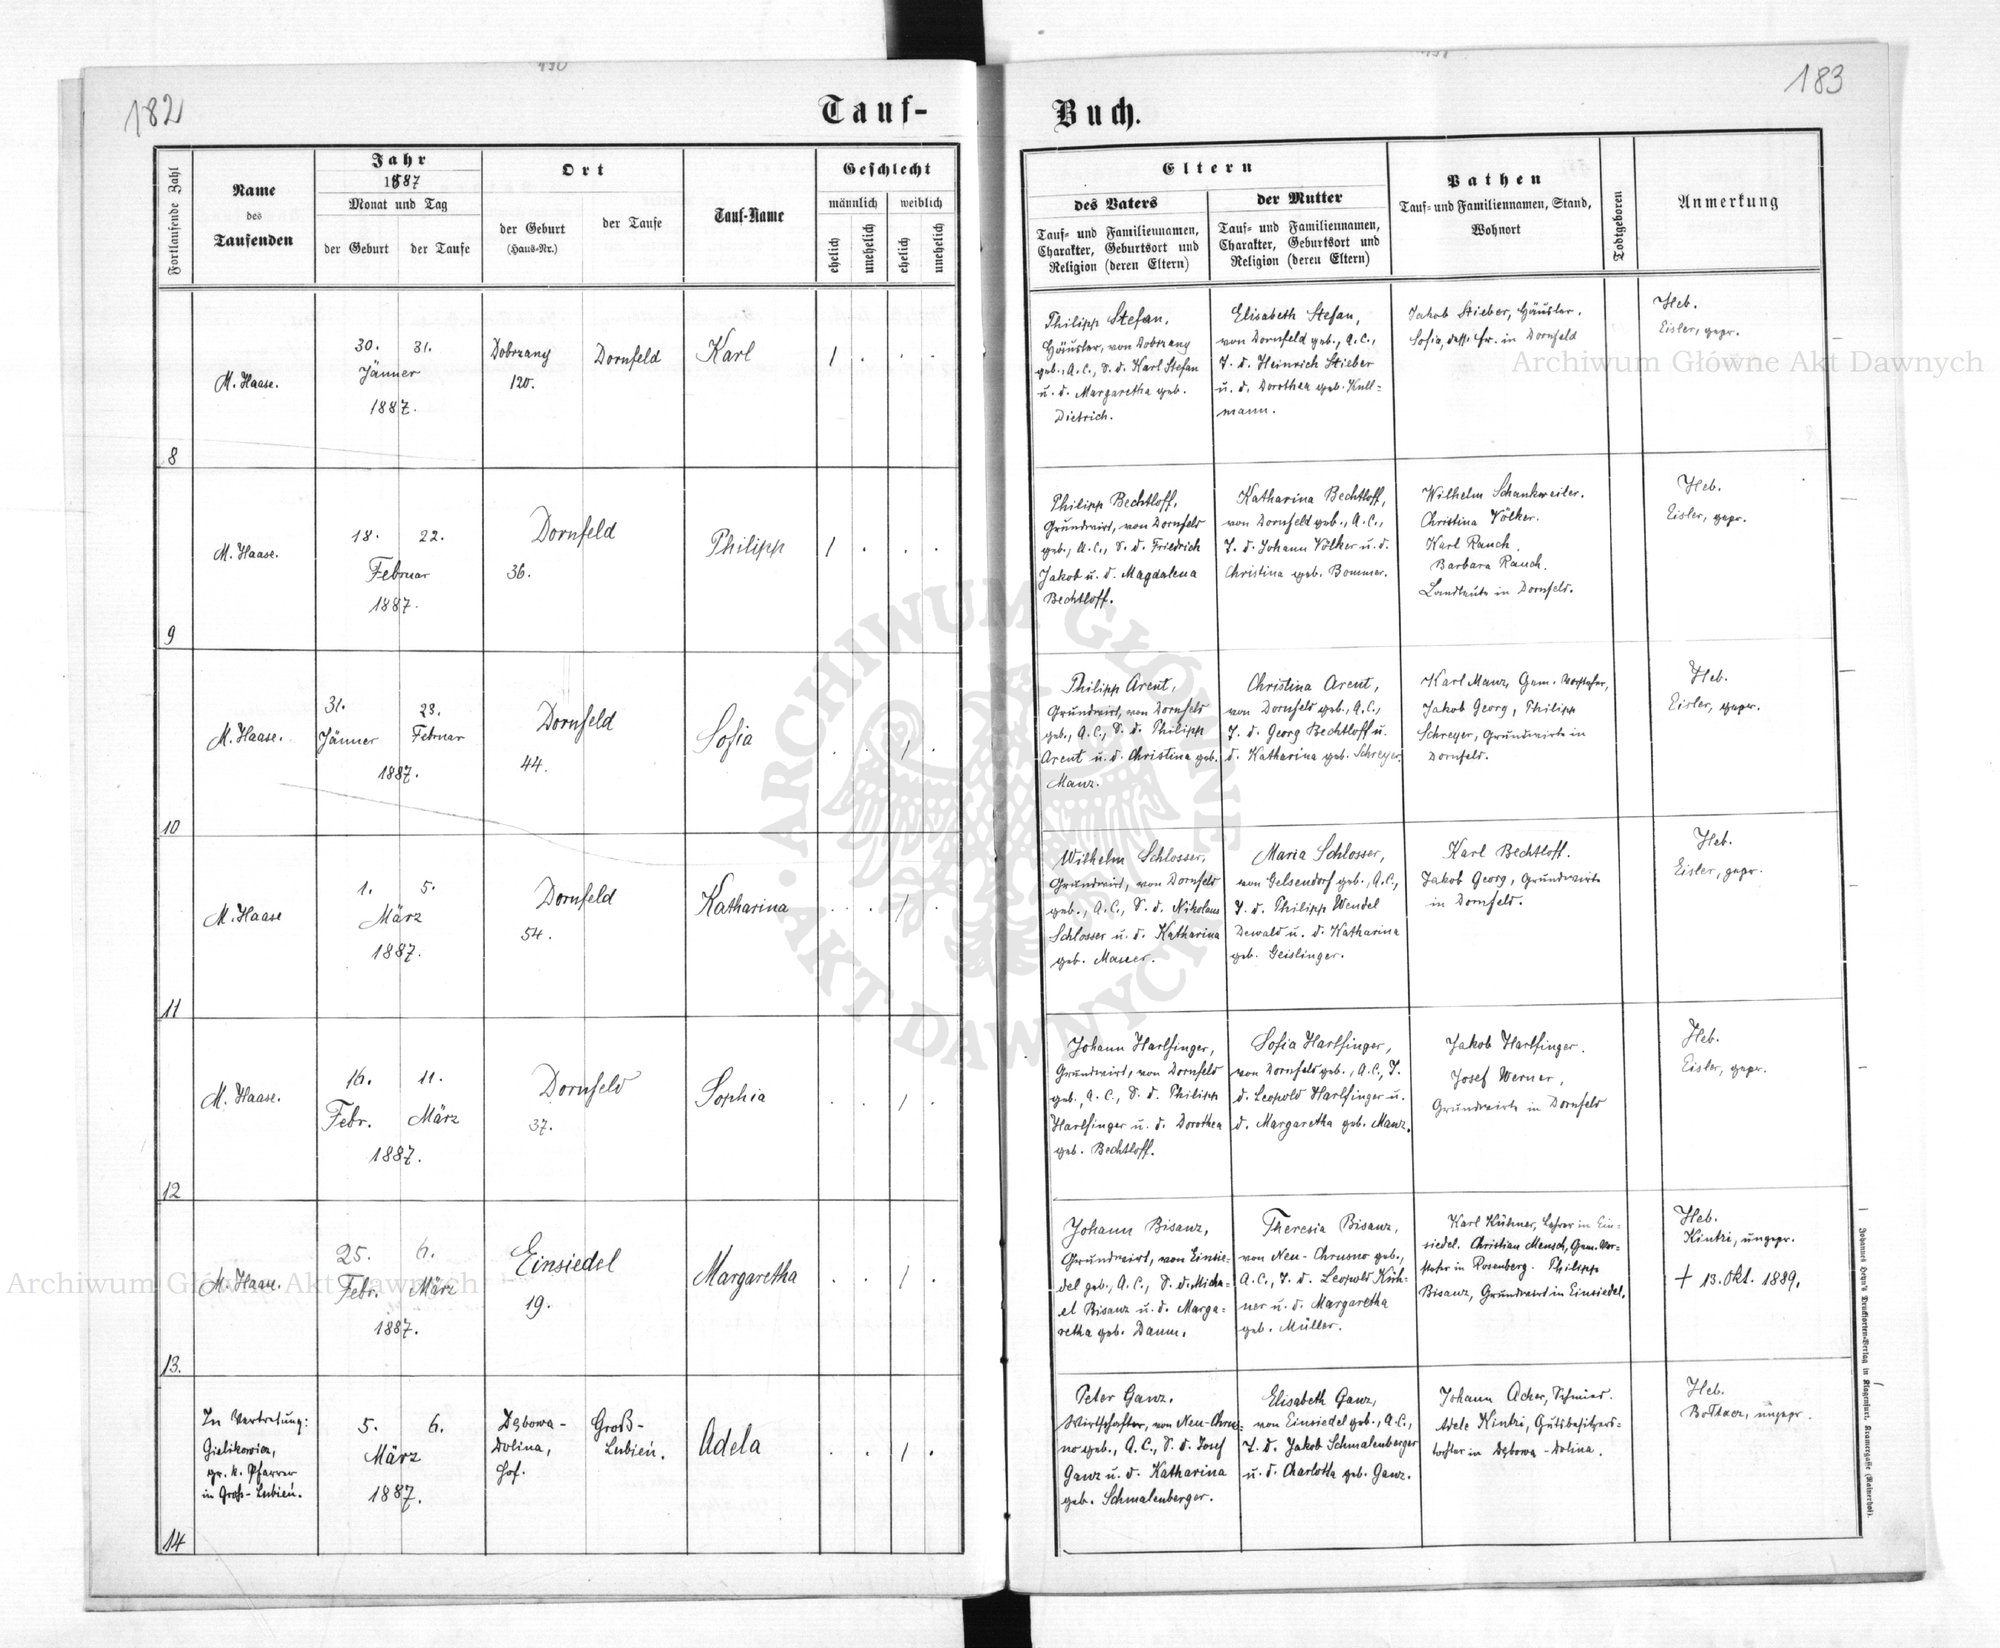 182
Tauf-
Fortlaufende Zahl
Name
des
Taufenden
Jahr
1887
Monat und Tag
der Geburt
der Taufe
Ort
der Geburt
(Haus-Nr.)
der Taufe
Tauf-Name
Geschlecht
männlich
weiblich
ehelich
unehelich
ehelich
unehelich
8
M. Haase.
30. 31.
Jänner
1887.
Dobrzany
120.
Dornfeld
Karl
1 . . .
9
M. Haase.
18. 22.
Februar
1887.
Dornfeld
36.
Philipp
1 . . .
10
M. Haase.
31. 23.
Jänner Februar
1887.
Dornfeld
44.
Sofia
. . 1 .
11
M. Haase
1. 5.
März
1887.
Dornfeld
54.
Katharina
. . 1 .
12
M. Haase.
16. 11.
Febr. März
1887.
Dornfeld
37.
Sophia
. . 1 .
13.
M. Haase.
25. 6.
Febr. März
1887.
Einsiedel
19.
Margaretha
. . 1 .
14
In Vertretung:
Gielikowicz,
gr. k. Pfarrer
in Groß-Lubień.
5. 6.
März
1887.
Dębowa-
Dolina,
Hof.
Groß-
Lubień.
Adela
. . 1 .
183
Buch.
Eltern
des Vaters
Tauf- und Familiennamen,
Charakter, Geburtsort und
Religion (deren Eltern)
der Mutter
Tauf- und Familiennamen,
Charakter, Geburtsort und
Religion (deren Eltern)
Pathen
Tauf- und Familiennamen, Stand,
Wohnort
Todtgeboren
Anmerkung
Philipp Stefan,
Häusler, von Dobrzany
geb., A.C., S. d. Karl Stefan
u. d. Margaretha geb.
Dietrich.
Elisabeth Stefan,
von Dornfeld geb., A.C.,
T. d. Heinrich Stieber
u. d. Dorothea geb. Kull-
mann.
Jakob Stieber, Häusler.
Sofia, dess. Fr. in Dornfeld
Heb.
Eisler, gepr.
Philipp Bechtloff,
Grundwirt, von Dornfeld
geb., A.C., S. d. Friedrich
Jakob u. d. Magdalena
Bechtloff.
Katharina Bechtloff,
von Dornfeld geb., A.C.,
T. d. Johann Völker u. d.
Christina geb. Bommer.
Wilhelm Schankweiler.
Christina Völker.
Karl Rauch.
Barbara Rauch.
Landleute in Dornfeld.
Heb.
Eisler, gepr.
Philipp Arent,
Grundwirt, von Dornfeld
geb., A.C., S. d. Philipp
Arent u. d. Christina geb.
Manz.
Christina Arent,
von Dornfeld geb., A.C.,
T. d. Georg Bechtloff u.
d. Katharina geb. Schreyer.
Karl Manz, Gem. Vorsteher,
Jakob Georg, Philipp
Schreyer, Grundwirte in
Dornfeld.
Heb.
Eisler, gepr.
Wilhelm Schlosser,
Grundwirt, von Dornfeld
geb., A.C., S. d. Nikolaus
Schlosser u. d. Katharina
geb. Mauer.
Maria Schlosser,
von Gelsendorf geb., A.C.,
T. d. Philipp Wendel
Dewald u. d. Katharina
geb. Geislinger.
Karl Bechtloff.
Jakob Georg, Grundwirte
in Dornfeld.
Heb.
Eisler, gepr.
Johann Harlfinger,
Grundwirt, von Dornfeld
geb., A.C., S. d. Philipp
Harlfinger u. d. Dorothea
geb. Bechtloff.
Sofia Harlfinger,
von Dornfeld geb., A.C., T.
d. Leopold Harlfinger u.
d. Margaretha geb. Manz.
Jakob Harlfinger.
Josef Werner,
Grundwirte in Dornfeld
Heb.
Eisler, gepr.
Johann Bisanz,
Grundwirt, von Einsie-
del geb., A.C., S. d. Micha-
el Bisanz u. d. Marga-
retha geb. Daum.
Theresia Bisanz,
von Neu-Chrusno geb.,
A.C., T. d. Leopold Küh-
ner u. d. Margaretha
geb. Müller.
Karl Kühner, Lehrer in Ein-
siedel. Christian Mensch, Gem. Vor-
steher in Rosenberg. Philipp
Bisanz, Grundwirt in Einsiedel.
Heb.
Kintzi, ungepr.
† 13. Okt. 1889.
Peter Ganz,
Wirtschafter, von Neu-Chrus-
no geb., A.C., S. d. Josef
Ganz u. d. Katharina
geb. Schmalenberger.
Elisabeth Ganz,
von Einsiedel geb., A.C.,
T. d. Jakob Schmalenberger
u. d. Charlotta geb. Ganz.
Johann Acker, Schmied.
Adele Kintzi, Gutsbesitzers-
tochter in Dębowa-Dolina.
Heb.
ungepr.
Johannes Heyn's Drucksorten-Verlag in Klagenfurt, Kramergasse (Rainerhof).
Archiwum Główne Akt Dawnych
Archiwum Główne Akt Dawnych
ARCHIWUM GŁÓWNE · AKT DAWNYCH ·